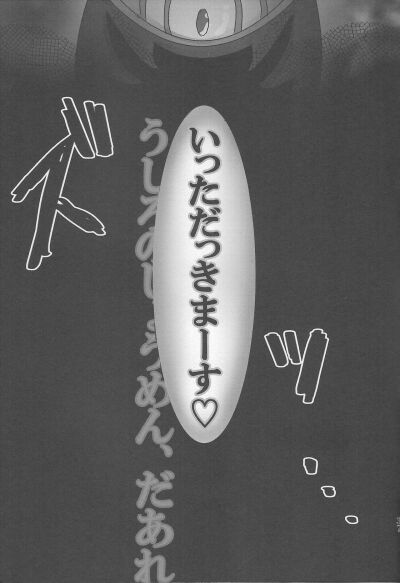 ズッ…
いっただっきまーす♡
うしろのしょうめん、だあれ